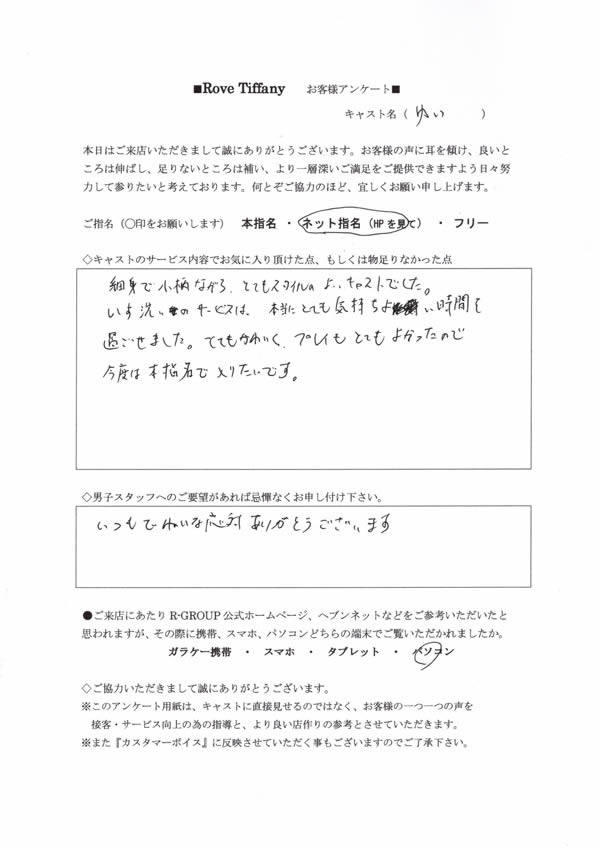 ■Rove Tiffany お客様アンケート■
キャスト名（ ゆい ）
本日はご来店いただきまして誠にありがとうございます。お客様の声に耳を傾け、良いと
ころは伸ばし、足りないところは補い、より一層深いご満足をご提供できますよう日々努
力して参りたいと考えております。何とぞご協力のほど、宜しくお願い申し上げます。
ご指名（〇印をお願いします） 本指名 ・ ネット指名（HPを見て） ・ フリー
◇キャストのサービス内容でお気に入り頂けた点、もしくは物足りなかった点
細身で小柄ながら、とてもスタイルのよいキャストでした。
いす洗い のサービスは、本当にとても気持ちよ い時間を
過ごせました。とてもかわいく、プレイもとてもよかったので
今度は本指名で入りたいです。
◇男子スタッフへのご要望があれば忌憚なくお申し付け下さい。
いつもていねいな応対ありがとうございます
●ご来店にあたり R-GROUP 公式ホームページ、ヘブンネットなどをご参考いただいたと
思われますが、その際に携帯、スマホ、パソコンどちらの端末でご覧いただかれましたか。
ガラケー携帯 ・ スマホ ・ タブレット ・ パソコン
◇ご協力いただきまして誠にありがとうございます。
※このアンケート用紙は、キャストに直接見せるのではなく、お客様の一つ一つの声を
接客・サービス向上の為の指導と、より良い店作りの参考とさせていただきます。
※また『カスタマーボイス』に反映させていただく事もございますのでご了承下さい。